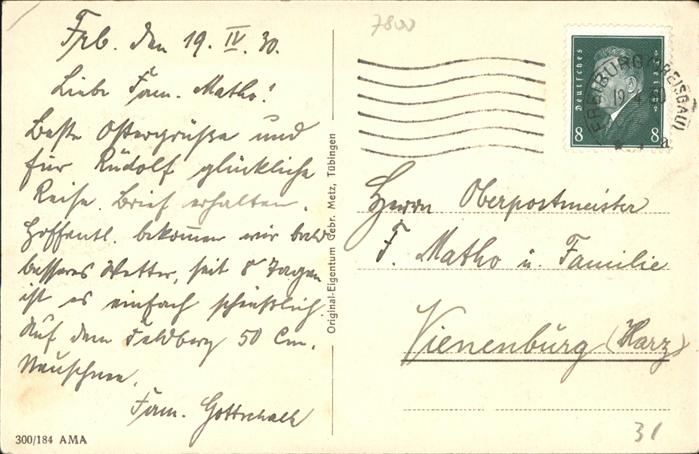 Frb. den 19. IV. 30.
Liebe Fam. Matho!
Beste Ostergrüsse und
für Rudolf glückliche
Reise. Brief erhalten.
Hoffentl. bekommen wir bald
besseres Wetter, seit 8 Tagen
ist es einfach scheusslich
Auf dem Feldberg 50 Cm.
Neuschnee.
Fam. Gottschalk
300/184 AMA
Original-Eigentum Gebr. Metz, Tübingen
7800
Deutsches Reich
8 8
FREIBURG (BREISGAU)
19.4.30
Herrn Oberpostmeister
F. Matho u. Familie
Vienenburg (Harz)
31